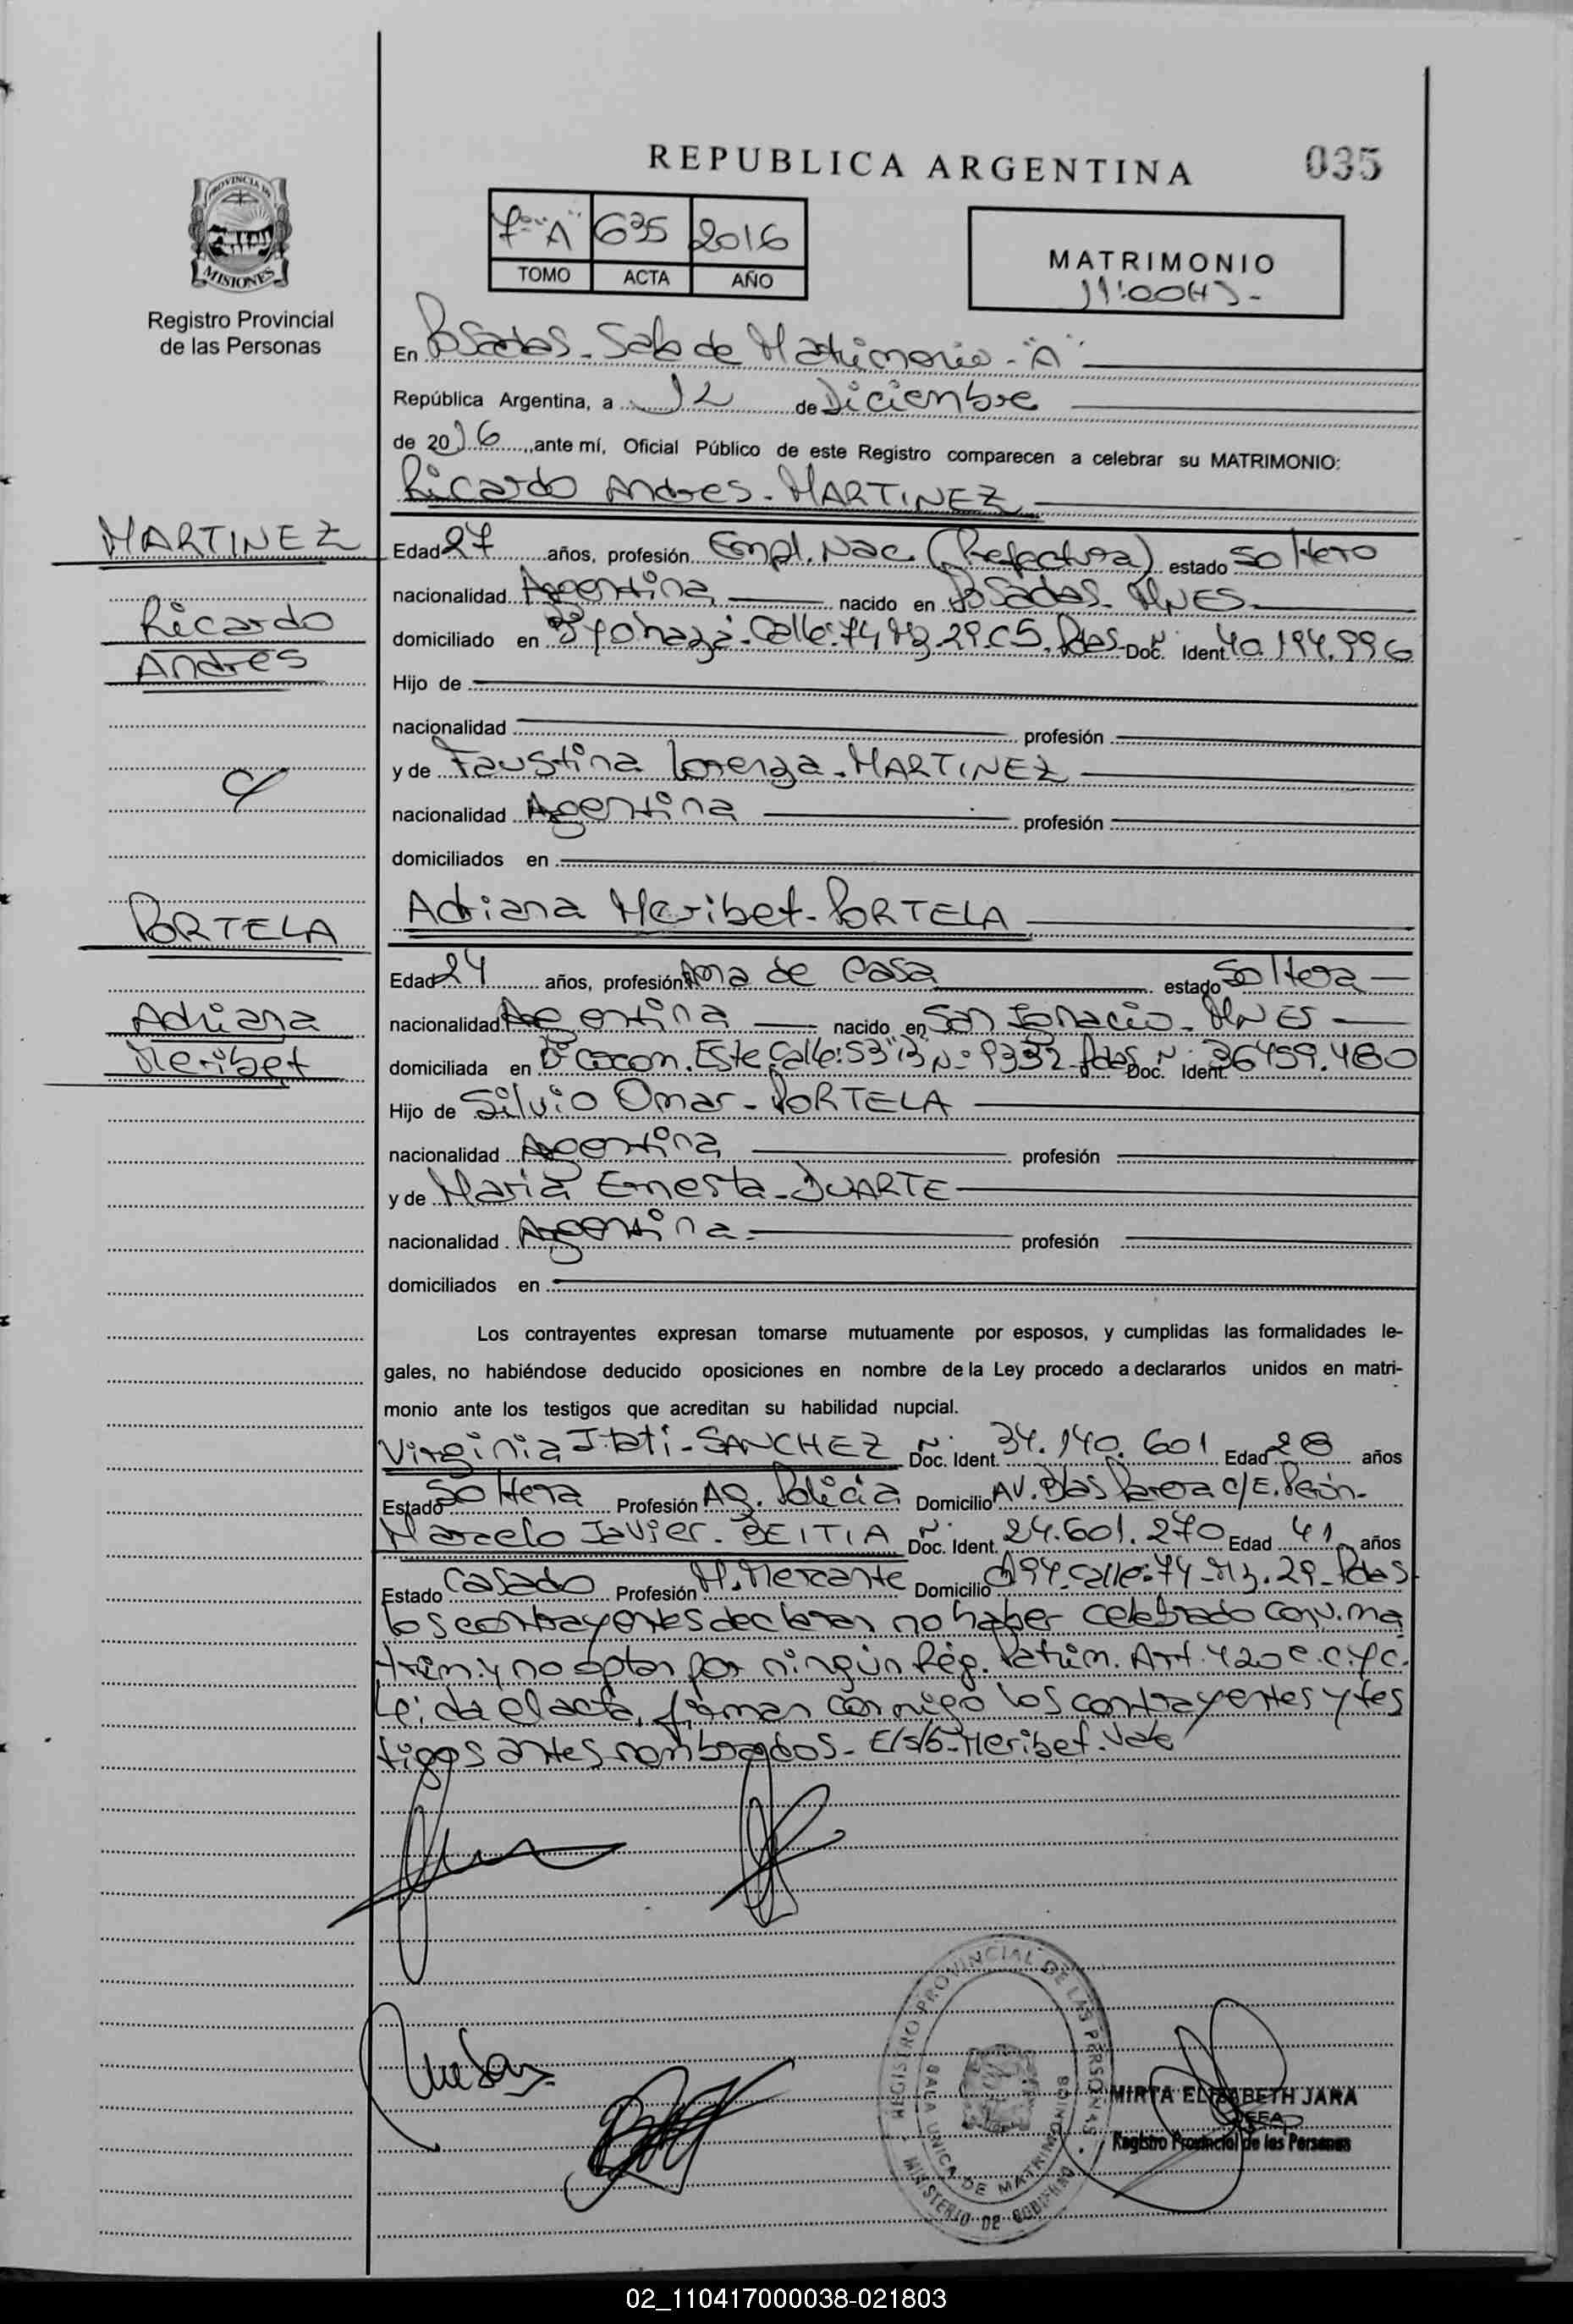 REPUBLICA ARGENTINA
035
PROVINCIA DE
MISIONES
Registro Provincial
de las Personas
7º "A" 635 2016
TOMO ACTA AÑO
MATRIMONIO
11:00Hs-
En Posadas-Sala de Matrimonio-"A"
República Argentina, a 12 de Diciembre
de 2016, ante mí, Oficial Público de este Registro comparecen a celebrar su MATRIMONIO:
Ricardo Andres-MARTINEZ
MARTINEZ
Ricardo
Andres
c/
PORTELA
Adriana
Meribet
Edad 27 años, profesión Empl. Nac. (Prefectura) estado Soltero
nacionalidad Argentina nacido en Posadas-MNES
domiciliado en Calle:74 Mz.29.C5. Pdas-Doc. Nº Ident. 40.194.996
Hijo de
nacionalidad profesión
y de Faustina Lorenza-MARTINEZ
nacionalidad Argentina profesión
domiciliados en
Adriana Meribet-PORTELA
Edad 24 años, profesión Ama de Casa estado Soltera
nacionalidad Argentina nacido en San Ignacio-MNES
domiciliada en Bº Cocom. Este Calle:53"B" Nº 9332-Pdas Doc. Nº Ident. 36459.480
Hijo de Silvio Omar-PORTELA
nacionalidad Argentina profesión
y de Maria Ernesta-DUARTE
nacionalidad Argentina profesión
domiciliados en
Los contrayentes expresan tomarse mutuamente por esposos, y cumplidas las formalidades le-
gales, no habiéndose deducido oposiciones en nombre de la Ley procedo a declararlos unidos en matri-
monio ante los testigos que acreditan su habilidad nupcial.
Virginia Itati-SANCHEZ Doc. Nº Ident. 34.140.601 Edad 28 años
Estado Soltera Profesión Ag. Policia Domicilio AV. Blas Parera c/E. Perón-
Marcelo Javier-BEITIA Doc. Nº Ident. 24.601.270 Edad 41 años
Estado Casado Profesión M. Mercante Domicilio Calle:74-Mz.29-Pdas
Los contrayentes declaran no haber celebrado conv. ma
trim. y no optan por ningún Rég. Patrim. Art. 420 C.C.yC.
Leida el acta, firman conmigo los contrayentes y tes
tigos antes nombrados-E/s/b-Meribet. Vale
REGISTRO PROVINCIAL DE LAS PERSONAS
SALA UNICA DE MATRIMONIOS
MINISTERIO DE GOBIERNO
MIRTA ELIZABETH JARA
JEFA
Registro Provincial de las Personas
02_110417000038-021803